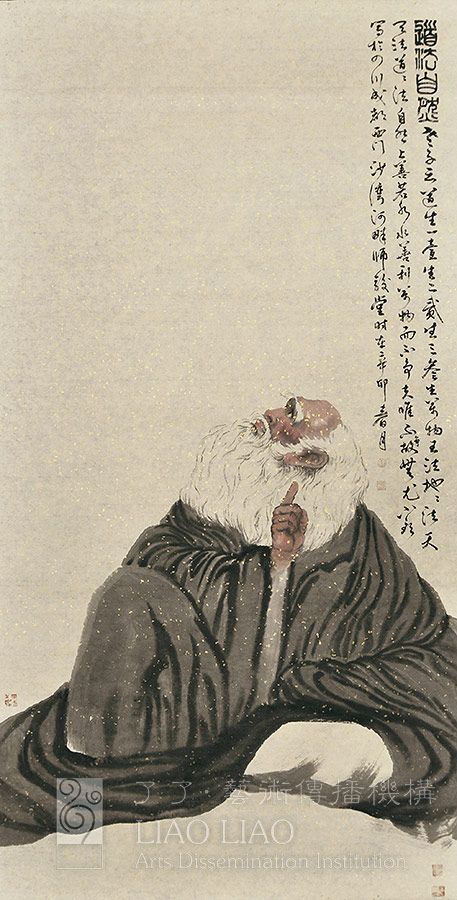 道法自然
老子云道生一壹生二貳生三叁生萬物王法地〻法天
天法道〻法自然上善若水水善利萬物而不爭夫唯不爭故無尤
寫於四川成都西門沙灣河畔師堂時在辛卯春月
了了·藝術傳播機構
LIAO LIAO
Arts Dissemination Institution